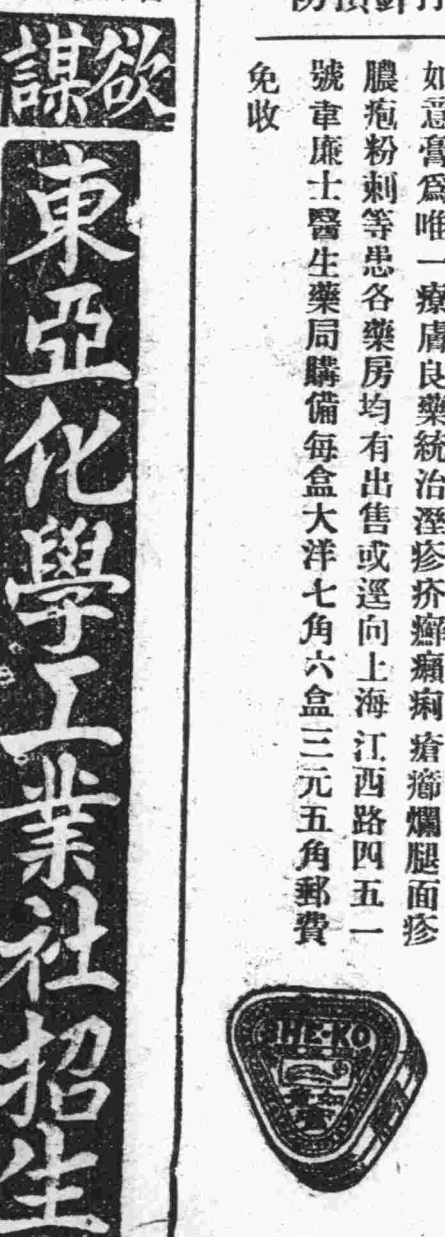 如意膏爲唯一療膚良藥統治溼疹疥癬癩痢瘡癤爛腿面疹
膿疱粉刺等患各藥房均有出售或逕向上海江西路四五一
號韋廉士醫生藥局購備每盒大洋七角六盒三元五角郵費
免收
SHE-KO
如意膏
欲謀
東亞化學工業社招生